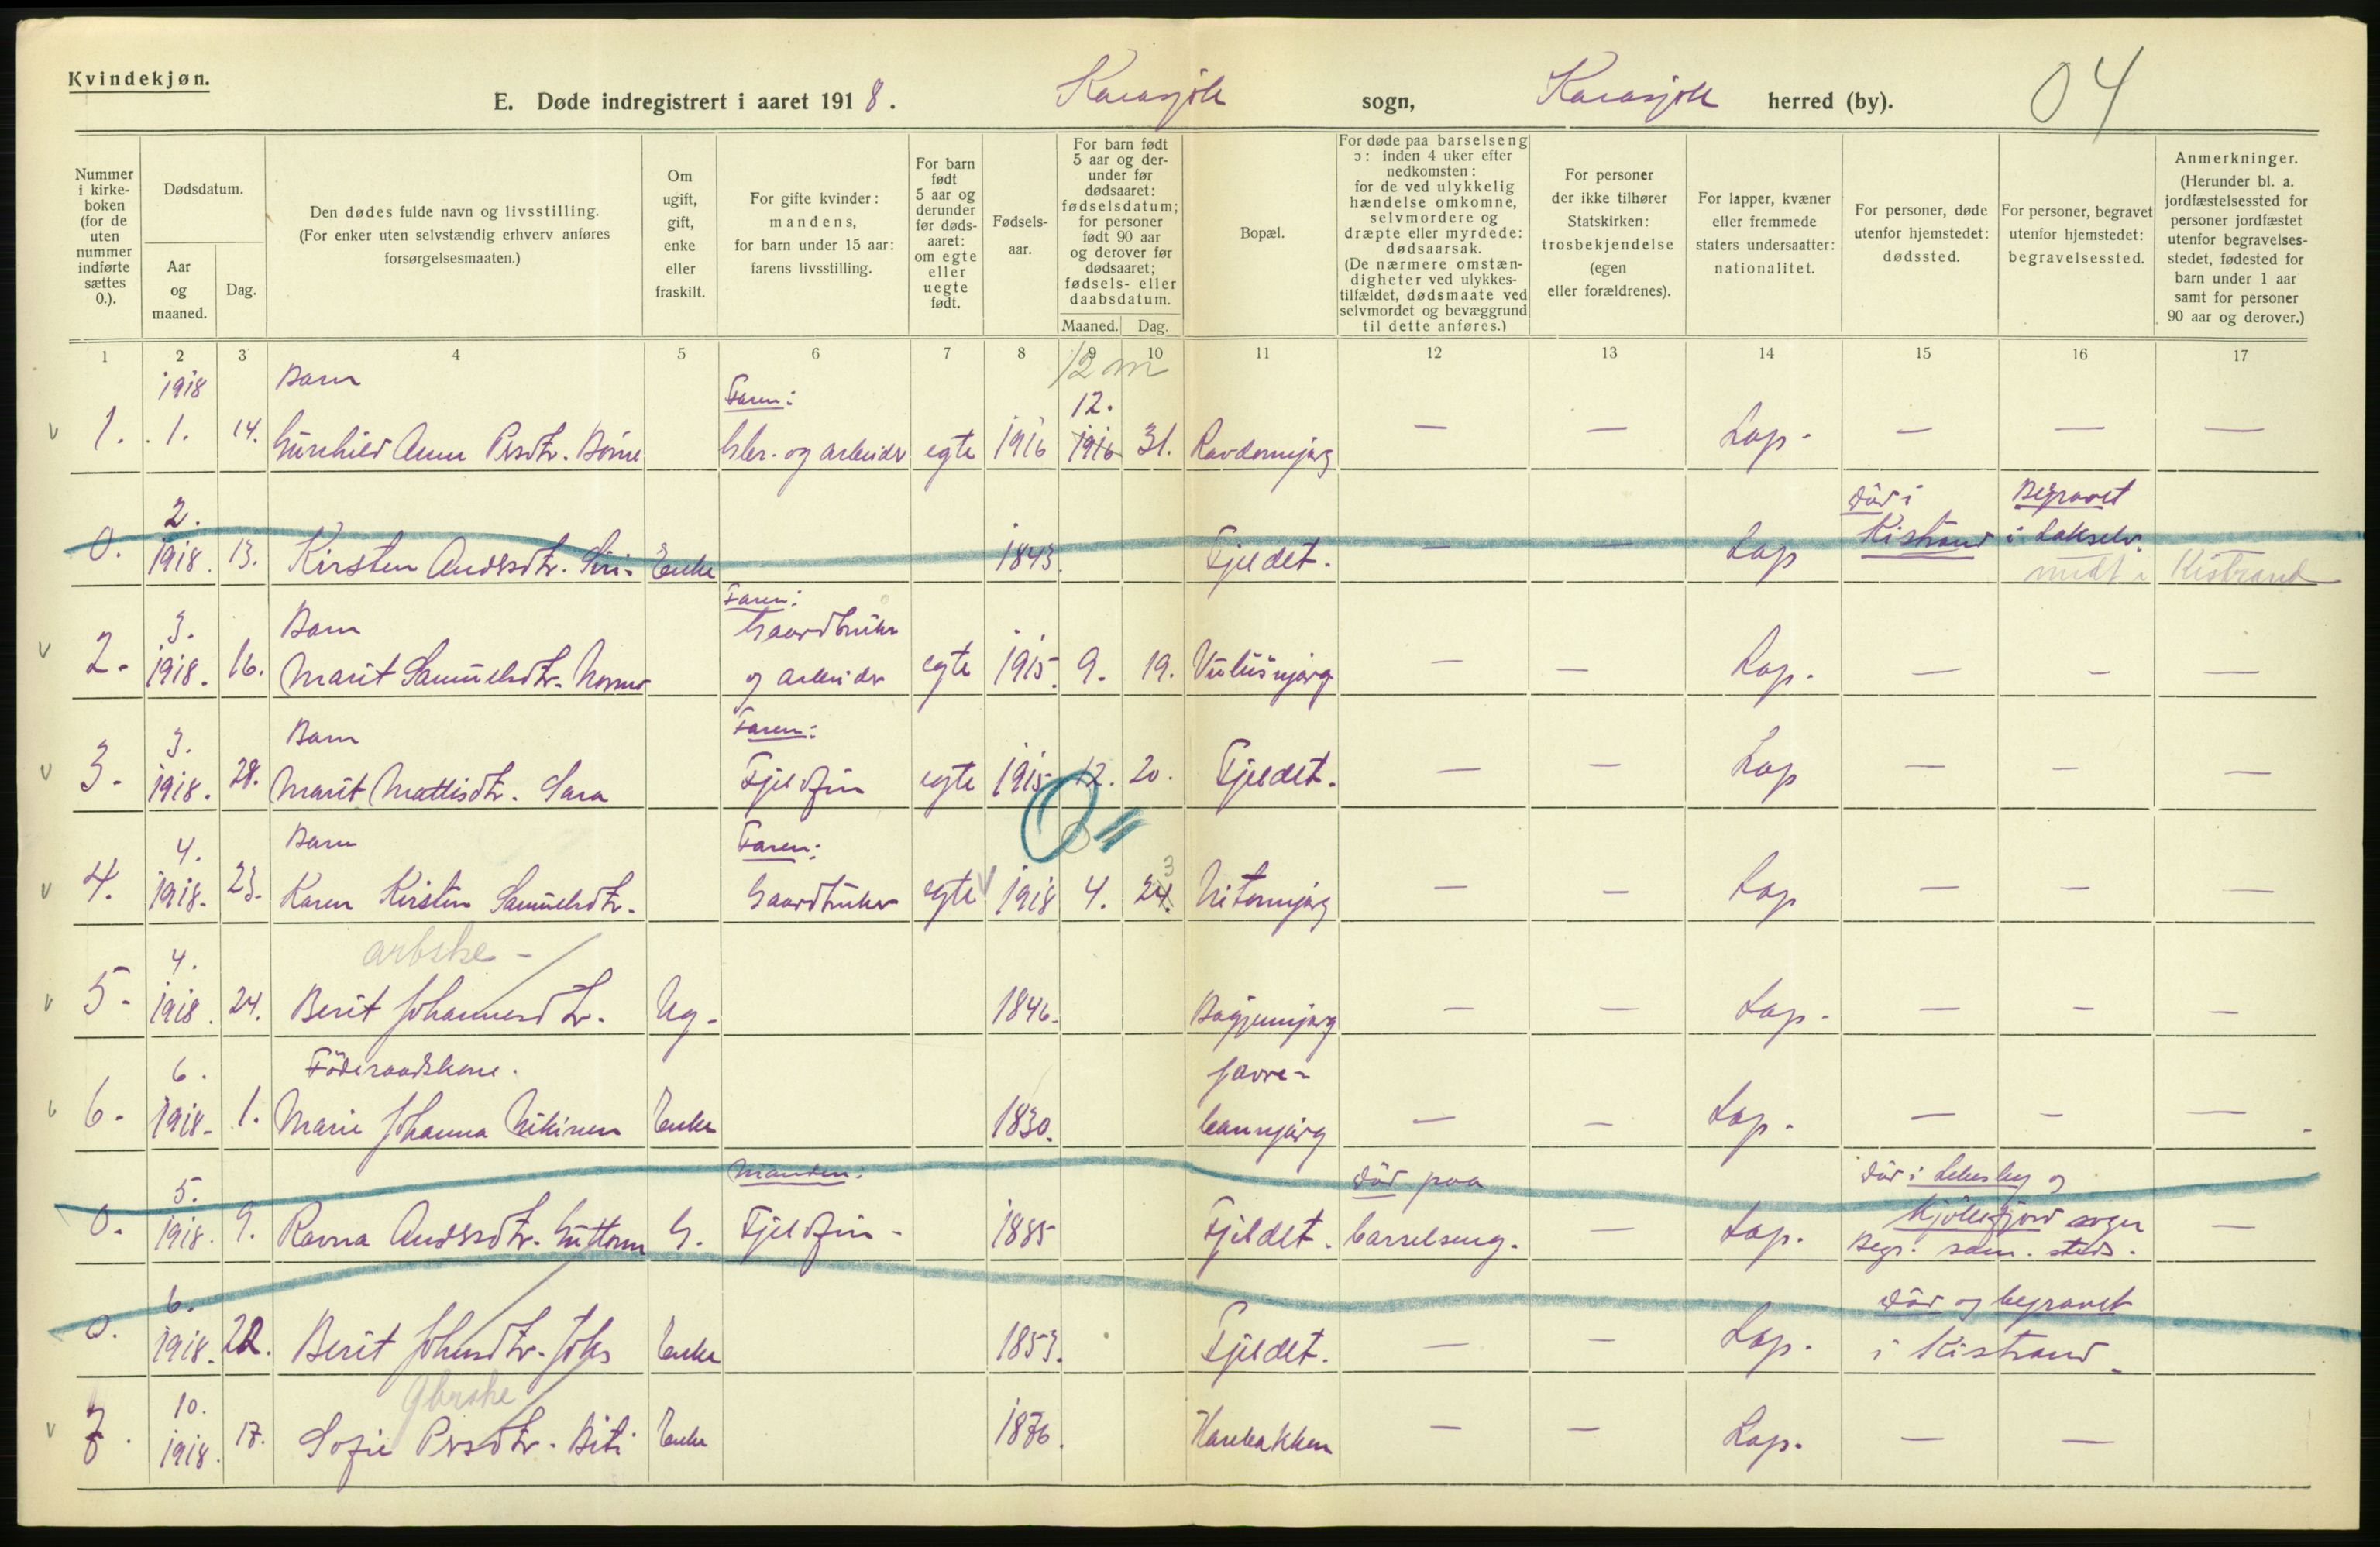 Kvindekjøn.
E. Døde indregistrert i aaret 1918. Karasjok sogn, Karasjok herred (by). 04
Nummer i kirkeboken (for de uten nummer indførte sættes 0.).
Dødsdatum.
Aar og maaned.
Dag.
Den dødes fulde navn og livsstilling. (For enker uten selvstændig erhverv anføres forsørgelsesmaaten.)
Om ugift, gift, enke eller fraskilt.
For gifte kvinder: mandens, for barn under 15 aar: farens livsstilling.
For barn født 5 aar og derunder før dødsaaret: om egte eller uegte født.
Fødselsaar.
For barn født 5 aar og derunder før dødsaaret: fødselsdatum; for personer født 90 aar og derover før dødsaaret; fødsels- eller daabsdatum.
Maaned. Dag.
Bopæl.
For døde paa barselseng ɔ: inden 4 uker efter nedkomsten: for de ved ulykkelig hændelse omkomne, selvmordere og dræpte eller myrdede: dødsaarsak. (De nærmere omstændigheter ved ulykkestilfældet, dødsmaate ved selvmordet og bevæggrund til dette anføres.)
For personer der ikke tilhører Statskirken: trosbekjendelse (egen eller forældrenes).
For lapper, kvæner eller fremmede staters undersaatter: nationalitet.
For personer, døde utenfor hjemstedet: dødssted.
For personer, begravet utenfor hjemstedet: begravelsessted.
Anmerkninger. (Herunder bl. a. jordfæstelsessted for personer jordfæstet utenfor begravelsesstedet, fødested for barn under 1 aar samt for personer 90 aar og derover.)
1 2 3 4 5 6 7 8 9 10 11 12 13 14 15 16 17
12 m
1918 Barn Faren: 12.
1. 1. 14. Gunhild Anna Persdtr. Gbr. og arbeider egte 1916 1916 31. Ravdomnjarg — — Lap. — — —
2. Død i Begravet
0. 1918. 13. Kirsten Andersdtr. Siri. Enke 1843. Fjeldet. — — Lap Kistrand i Lakselv.
medt i Kistrand
3. Barn Faren: Gaardbruker
2. 1918. 16. Marit Samuelsdtr. og arbeider egte 1915. 9. 19. — — Lap. — — —
3. Barn Faren:
3. 1918. 28. Marit Mattisdtr. Sara Fjeldfin egte 1915 12. 20. Fjeldet. — — Lap — — —
4. Barn Faren: 0 3
4. 1918. 23. Karen Kirsten Samuelsdtr. Gaardbruker egte 1918 4. 24. — — Lap — — —
4. arbske -
5. 1918. 24. Berit Johannesdtr. Ug. 1846. — — Lap. — — —
6. Föderaadskone. Javre-
6. 1918. 1. Marie Johanna Enke 1830. — — Lap. — — —
5. Manden: Död paa Död i Lebesby og
0. 1918. 9. Ravna Andersdtr. Guttorm G. Fjeldfin - 1885 Fjeldet. barselseng. — Lap. Kjöllefjord sogn —
Begr. sam. steds.
6. Död og begravet
0. 1918. 22. Berit Johnsdtr. Johs Enke 1853. Fjeldet. — — Lap. i Kistrand.
10. gbrske
7. 1918. 17. Sofie Persdtr. Biti Enke 1876. Harebakken — — Lap. — —